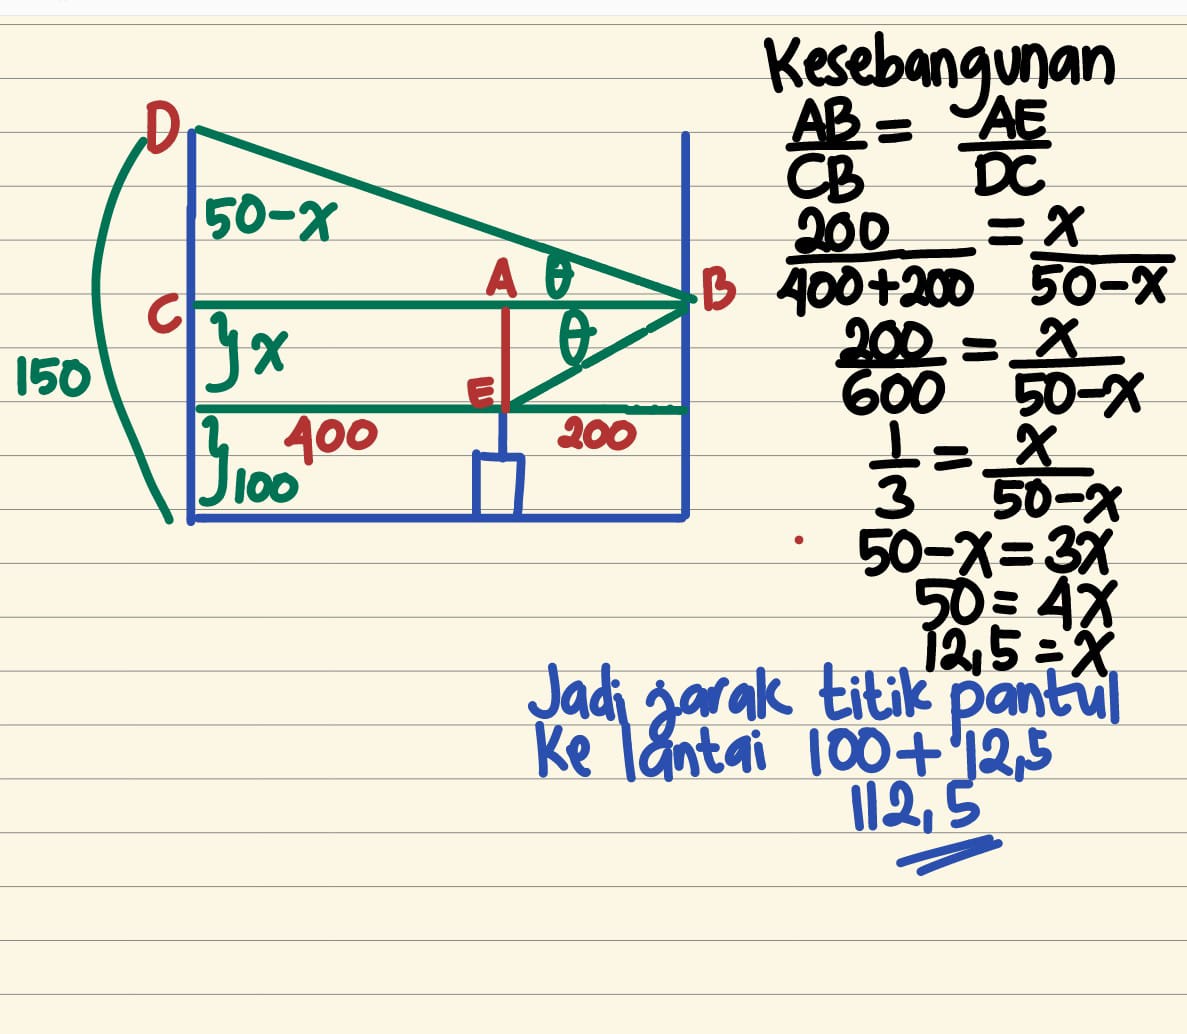 Kesebangunan
AB/CB = AE/DC
200/400+200 = x/50-x
200/600 = x/50-x
1/3 = x/50-x
50-x = 3x
50 = 4x
12,5 = x
D
50-x
A θ
B
C
} x
θ
150
E
400 200
} 100
Jadi jarak titik pantul
Ke lantai 100 + 12,5
112,5